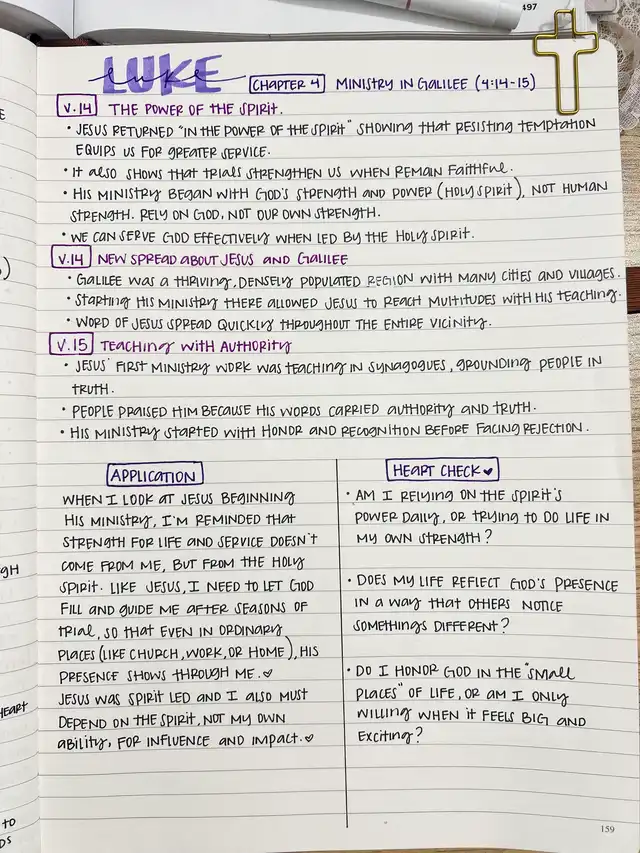 497
LUKE
luke
CHAPTER 4 MINISTRY IN GALILEE (4:14-15)
V.14 THE POWER OF THE SPIRIT.
• JESUS RETURNED "IN THE POWER OF THE SPIRIT" SHOWING THAT RESISTING TEMPTATION
EQUIPS US FOR GREATER SERVICE.
• IT ALSO SHOWS THAT TRIALS STRENGTHEN US WHEN REMAIN FAITHFUL.
• HIS MINISTRY BEGAN WITH GOD'S STRENGTH AND POWER (HOLY SPIRIT), NOT HUMAN
STRENGTH. RELY ON GOD, NOT OUR OWN STRENGTH.
• WE CAN SERVE GOD EFFECTIVELY WHEN LED BY THE HOLY SPIRIT.
V.14 NEW SPREAD ABOUT JESUS AND GALILEE
• GALILEE WAS A THRIVING, DENSELY POPULATED REGION WITH MANY CITIES AND VILLAGES.
• STARTING HIS MINISTRY THERE ALLOWED JESUS TO REACH MULTITUDES WITH HIS TEACHING.
• WORD OF JESUS SPREAD QUICKLY THROUGHOUT THE ENTIRE VICINITY.
V.15 TEACHING WITH AUTHORITY
• JESUS' FIRST MINISTRY WORK WAS TEACHING IN SYNAGOGUES, GROUNDING PEOPLE IN
TRUTH.
• PEOPLE PRAISED HIM BECAUSE HIS WORDS CARRIED AUTHORITY AND TRUTH.
• HIS MINISTRY STARTED WITH HONOR AND RECOGNITION BEFORE FACING REJECTION.
APPLICATION
WHEN I LOOK AT JESUS BEGINNING
HIS MINISTRY, I'M REMINDED THAT
STRENGTH FOR LIFE AND SERVICE DOESN'T
COME FROM ME, BUT FROM THE HOLY
SPIRIT. LIKE JESUS, I NEED TO LET GOD
FILL AND GUIDE ME AFTER SEASONS OF
TRIAL, SO THAT EVEN IN ORDINARY
PLACES (LIKE CHURCH, WORK, OR HOME), HIS
PRESENCE SHOWS THROUGH ME. ♡
JESUS WAS SPIRIT LED AND I ALSO MUST
DEPEND ON THE SPIRIT, NOT MY OWN
ABILITY, FOR INFLUENCE AND IMPACT. ♡
HEART CHECK ♥
• AM I RELYING ON THE SPIRIT'S
POWER DAILY, OR TRYING TO DO LIFE IN
MY OWN STRENGTH?
• DOES MY LIFE REFLECT GOD'S PRESENCE
IN A WAY THAT OTHERS NOTICE
SOMETHINGS DIFFERENT?
• DO I HONOR GOD IN THE "SMALL
PLACES" OF LIFE, OR AM I ONLY
WILLING WHEN IT FEELS BIG AND
EXCITING?
159
HEART
TO